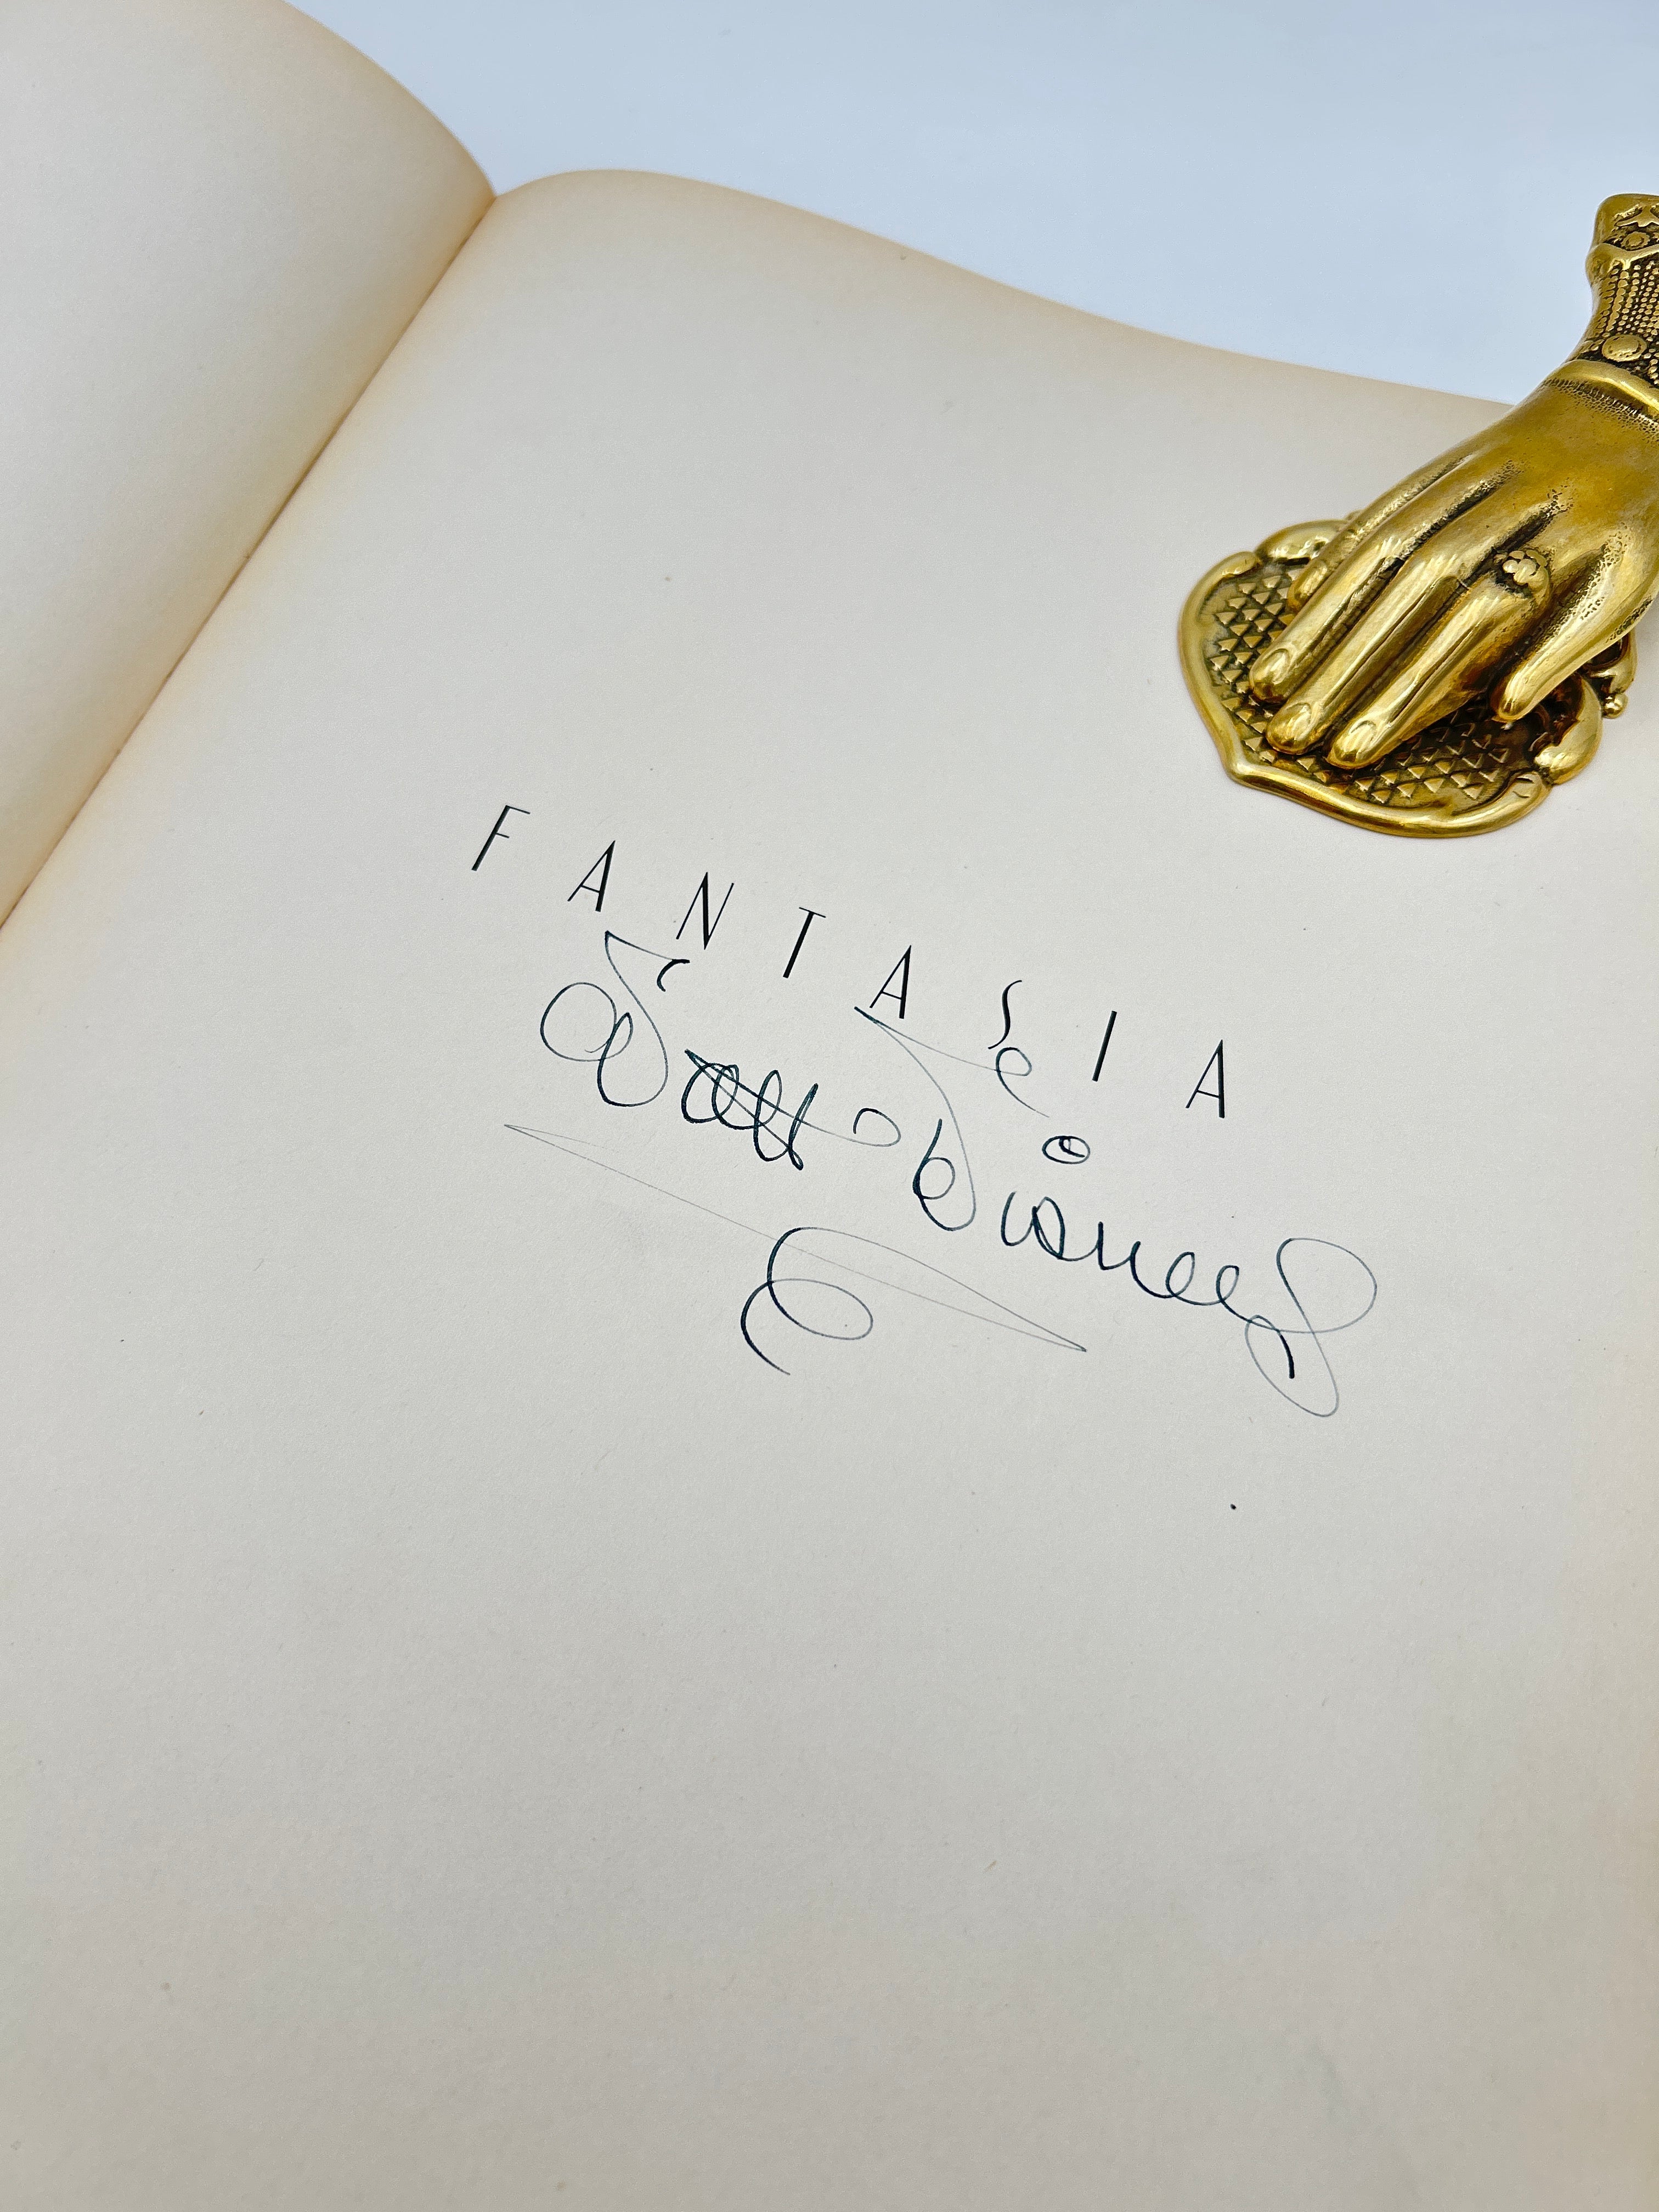 FANTASIA
Walt Disney